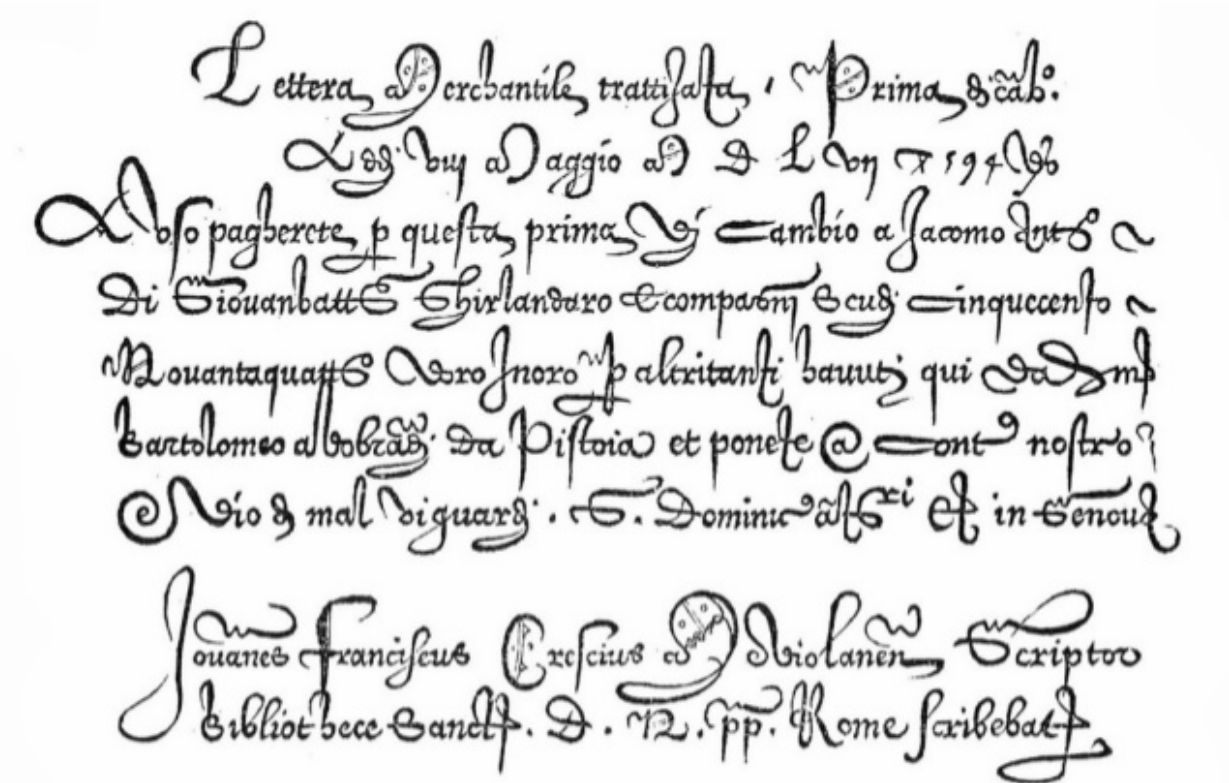 Lettera Merchantile trattizata, Prima di cãb:
Add: viij Maggio M D L vij 594
Uso pagherete p questa prima di Cambio a Jacomo
Di Giouanbatt Ghirlandaro & compagni Scudi cinquecento
Nouantaquatt dro Jnoro p altritanti hauuti qui da
Bartolomeo aldobrãd: Da Pistoia et ponete a Cont nostro
Dio di mal vi guardi. Dominic et in Genoua
Jouanes Franciscus Cresciuus Miolanen Scriptor
Bibliothece Sanct. D. N. pp. Rome scribebat